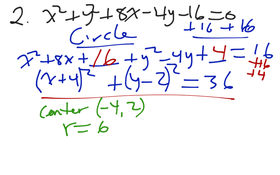 2. x² + y² + 8x - 4y - 16 = 0
+16 +16
Circle
x² + 8x + 16 + y² - 4y + 4 = 16
+16
+4
(x+4)² + (y-2)² = 36
center (-4, 2)
r = 6